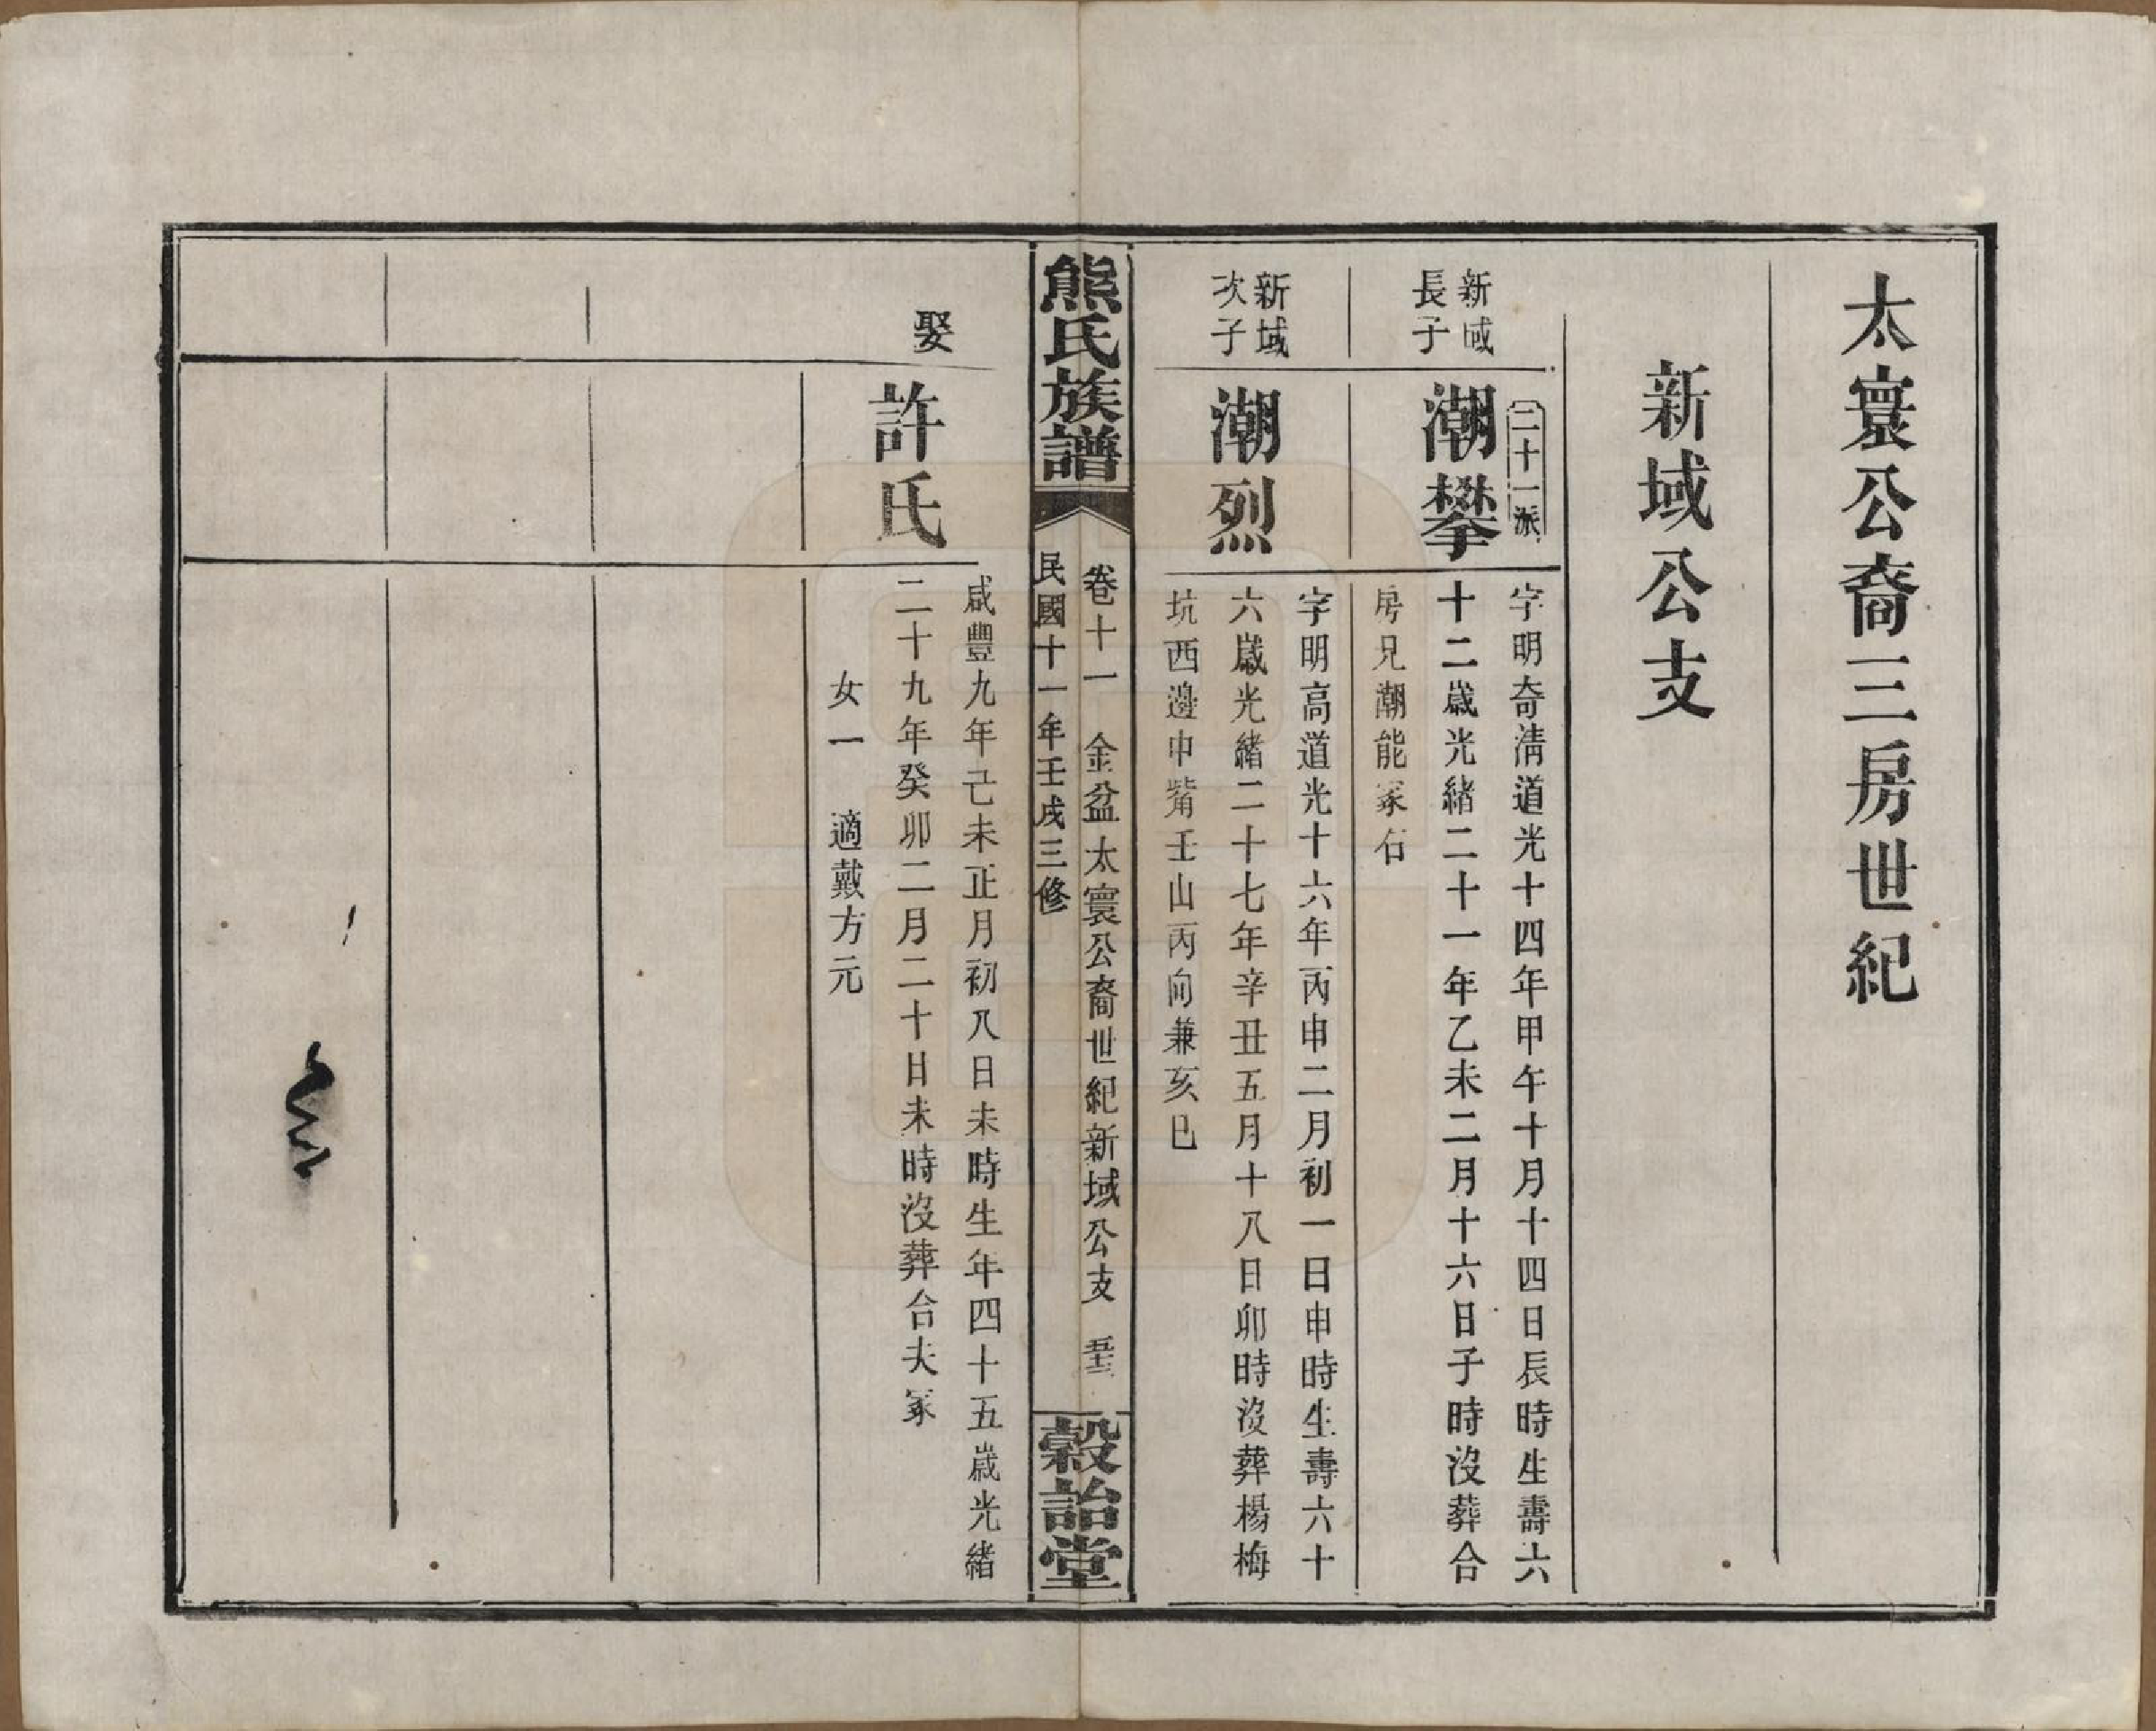 太寰公裔三房世紀
新域公支
二十一派
新域
長子
潮攀
字明奇清道光十四年甲午十月十四日辰時生壽六
十二歲光緒二十一年乙未二月十六日子時沒葬合
房兄潮能冢右
新域
次子
潮烈
字明高道光十六年丙申二月初一日申時生壽六十
六歲光緒二十七年辛丑五月十八日卯時沒葬楊梅
坑西邊中觜壬山丙向兼亥巳
熊氏族譜
卷十一 金盆太寰公裔世紀新域公支
民國十一年壬戌三修
穀詒堂
娶
許氏
咸豐九年己未正月初八日未時生年四十五歲光緒
二十九年癸卯二月二十日未時沒葬合夫冢
女一 適戴方元